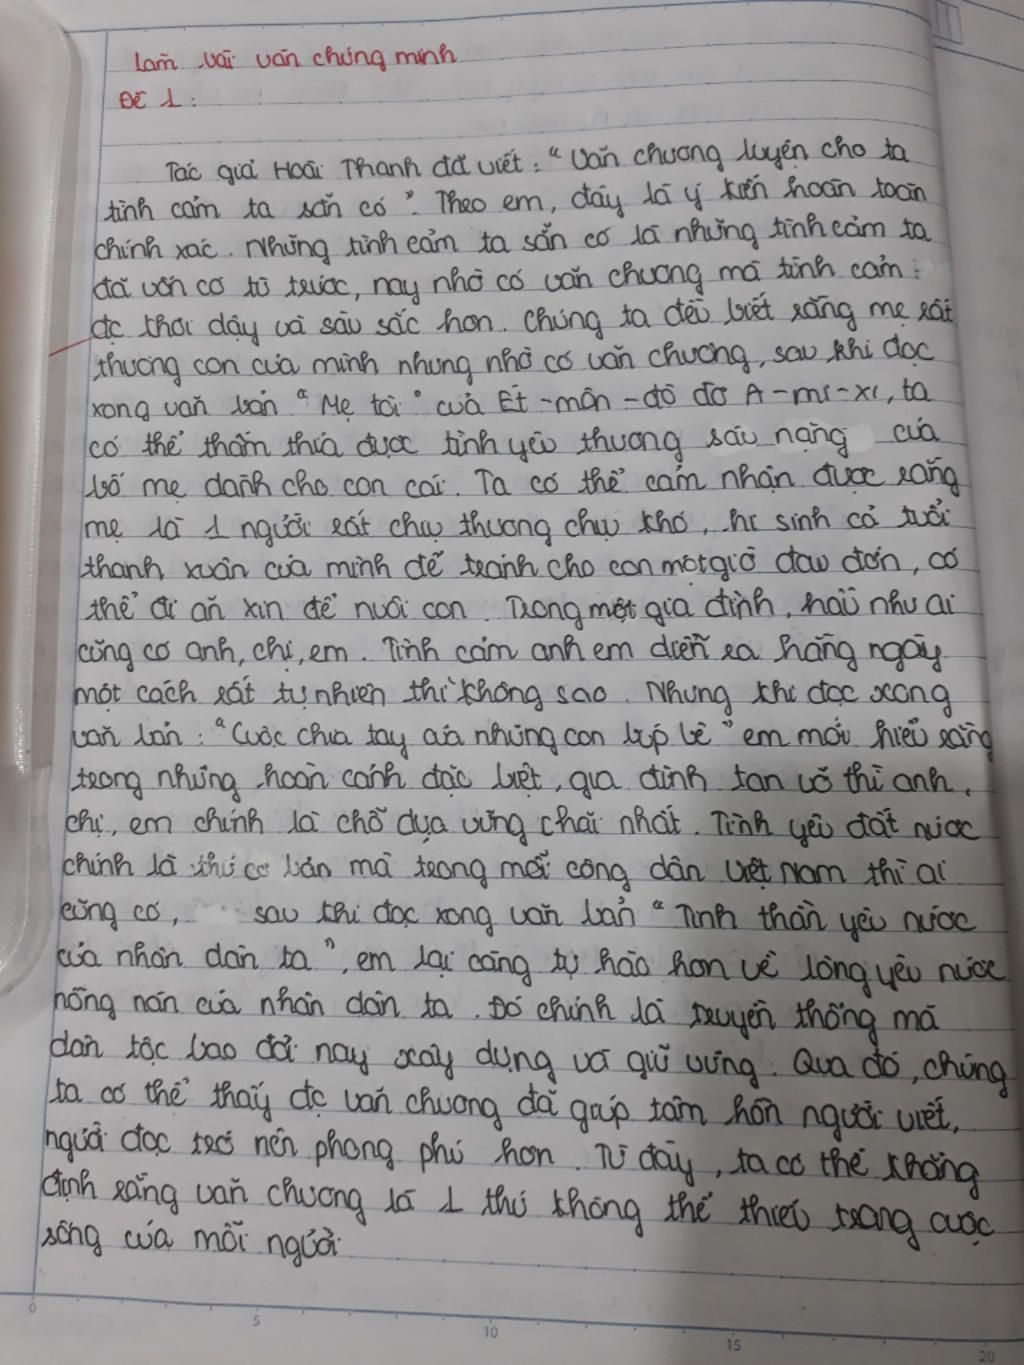 Làm bài văn chứng minh
Đề 1:
Tác giả Hoài Thanh đã viết: "Văn chương luyện cho ta
tình cảm ta sẵn có". Theo em, đây là ý kiến hoàn toàn
chính xác. Những tình cảm ta sẵn có là những tình cảm ta
đã vốn có từ trước, nay nhờ có văn chương mà tình cảm
đc khơi dậy và sâu sắc hơn. Chúng ta đều biết rằng mẹ rất
thương con của mình nhưng nhờ có văn chương, sau khi đọc
xong văn bản "Mẹ tôi" của Ét-môn-đô đơ A-mi-xi, ta
có thể thấm thía được tình yêu thương sâu nặng của
bố mẹ dành cho con cái. Ta có thể cảm nhận được rằng
mẹ là 1 người rất chịu thương chịu khó, hi sinh cả tuổi
thanh xuân của mình để tránh cho con một giờ đau đớn, có
thể đi ăn xin để nuôi con. Trong một gia đình, hầu như ai
cũng có anh, chị, em. Tình cảm anh em diễn ra hằng ngày
một cách rất tự nhiên thì không sao. Nhưng khi đọc xong
văn bản: "Cuộc chia tay của những con búp bê" em mới hiểu rằng
trong những hoàn cảnh đặc biệt, gia đình tan vỡ thì anh,
chị, em chính là chỗ dựa vững chãi nhất. Tình yêu đất nước
chính là thứ cơ bản mà trong mỗi công dân Việt Nam thì ai
cũng có, sau khi đọc xong văn bản "Tinh thần yêu nước
của nhân dân ta", em lại càng tự hào hơn về lòng yêu nước
nồng nàn của nhân dân ta. Đó chính là truyền thống mà
dân tộc bao đời nay xây dựng và giữ vững. Qua đó, chúng
ta có thể thấy đc văn chương đã giúp tâm hồn người viết,
người đọc trở nên phong phú hơn. Từ đây, ta có thể khẳng
định rằng văn chương là 1 thứ không thể thiếu trong cuộc
sống của mỗi người.
0
5
10
15
20